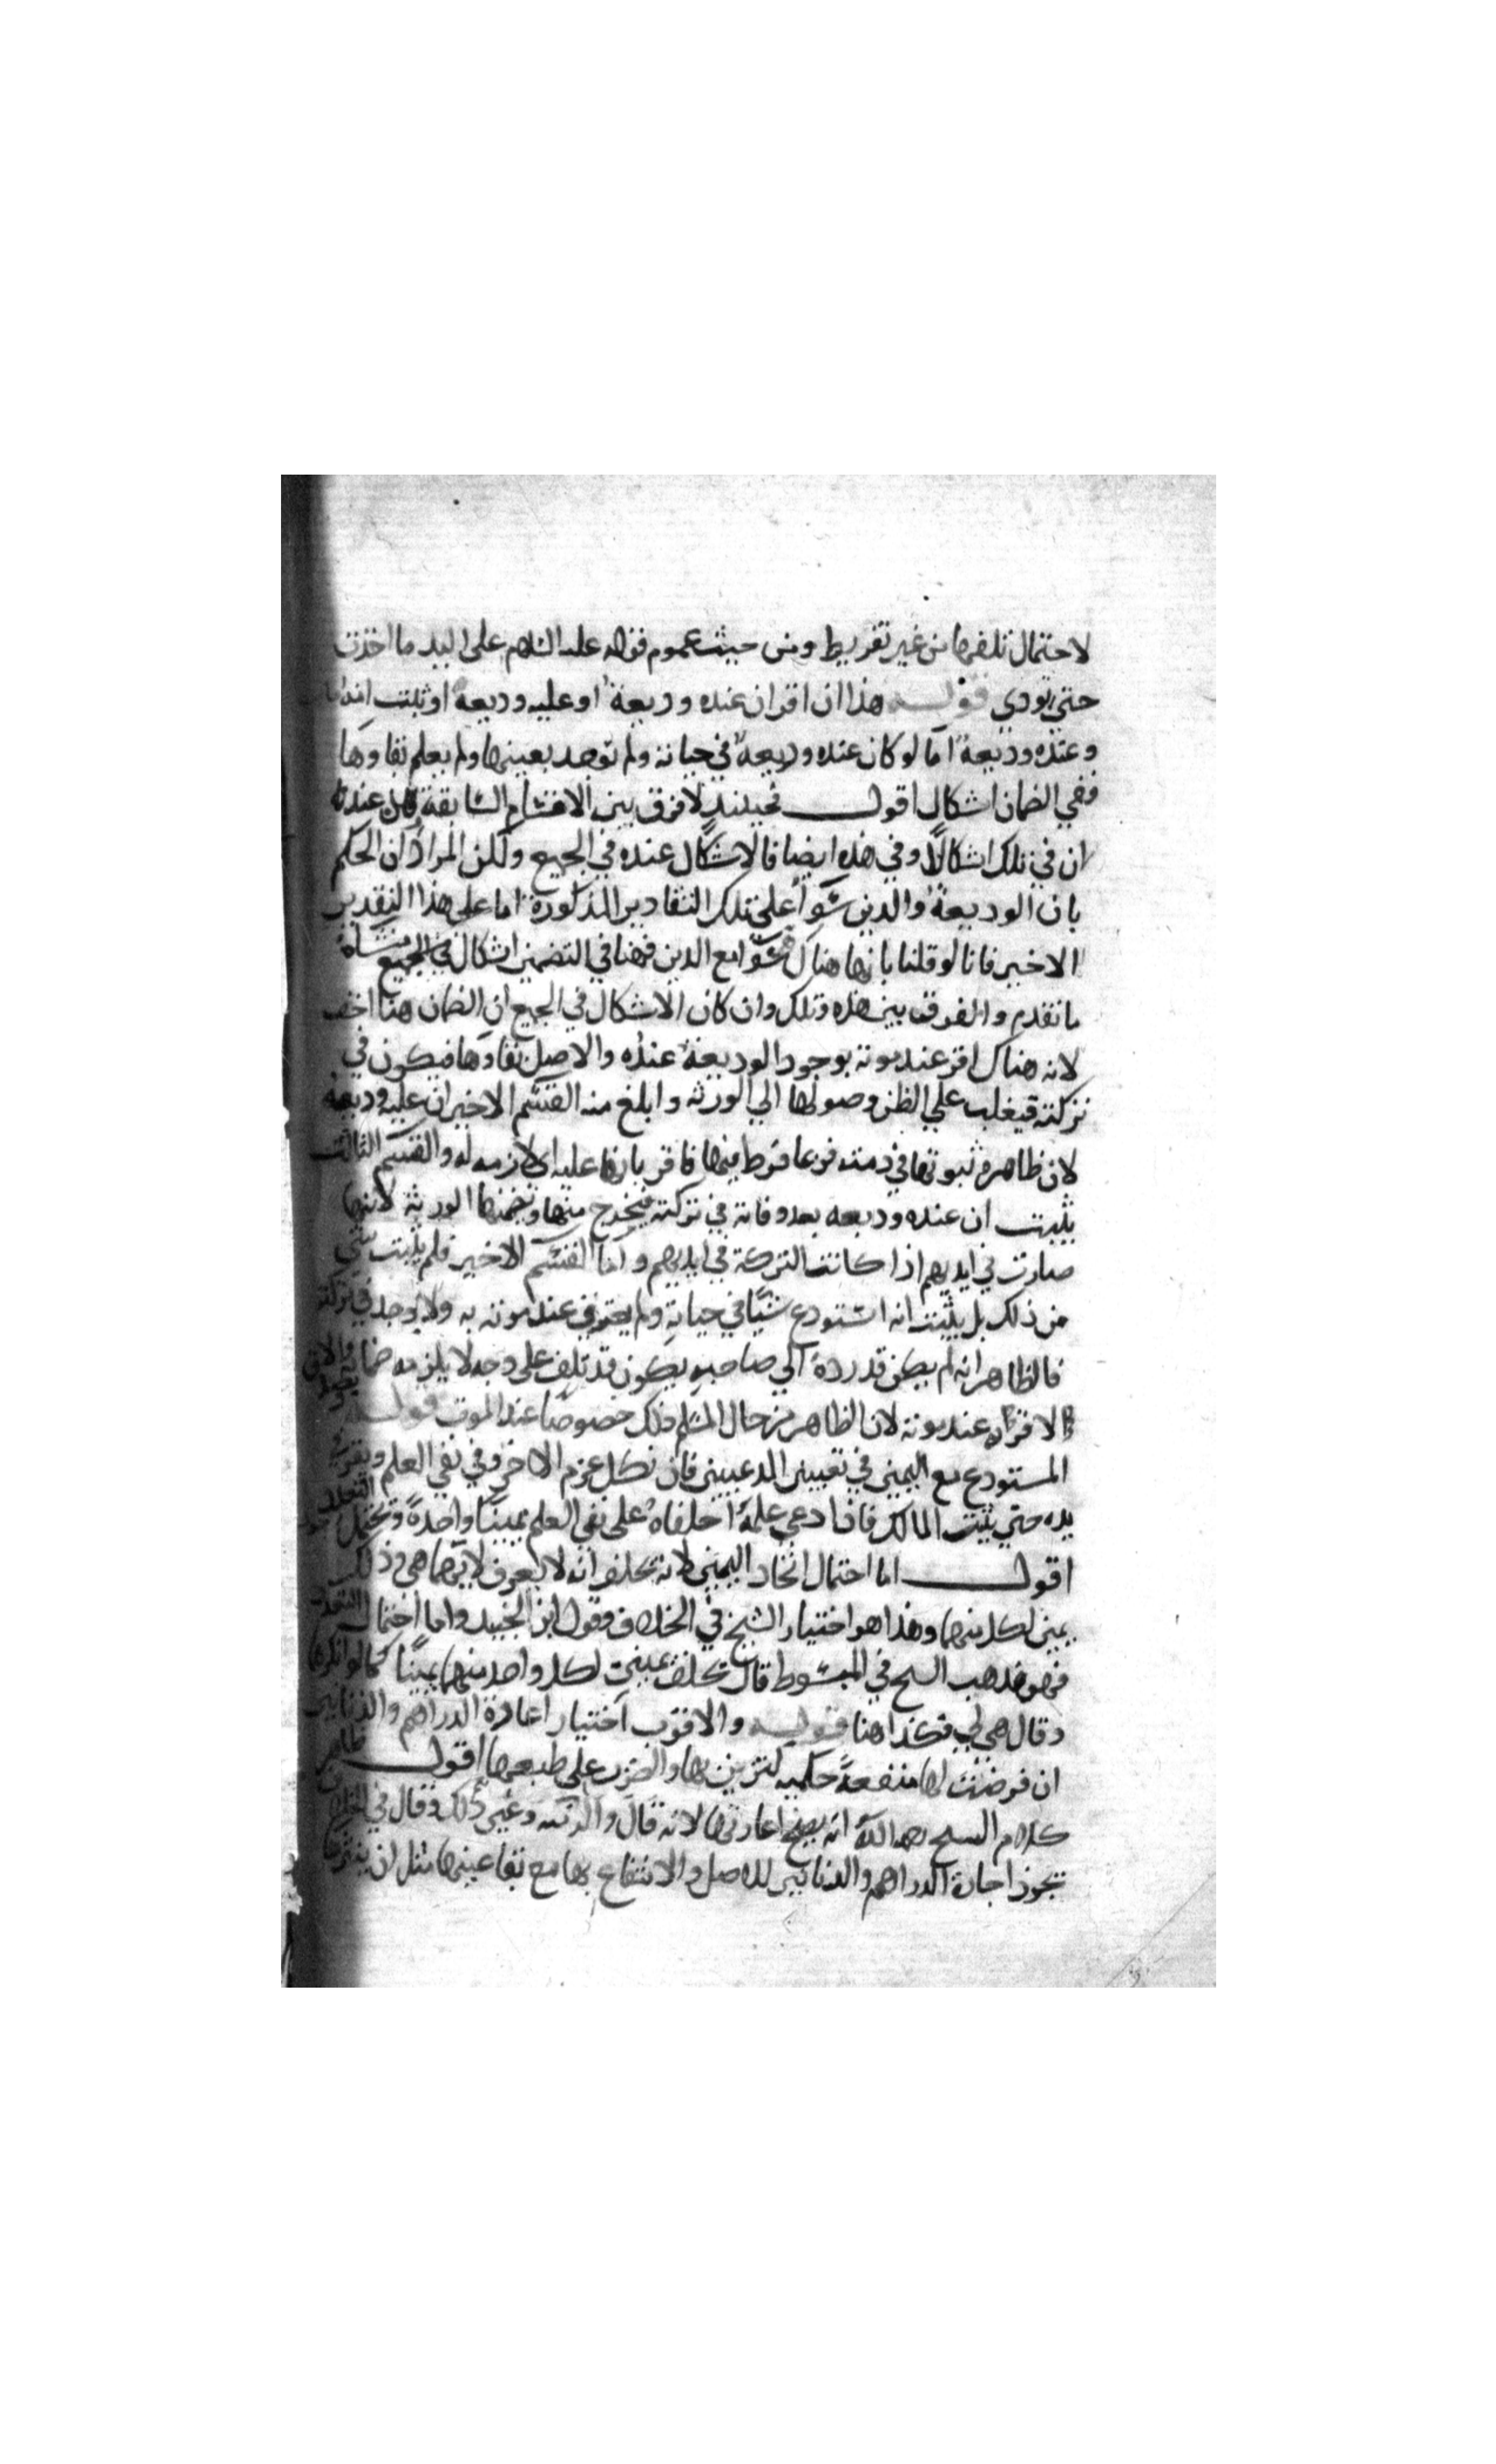 لاحتمال تلفها من غير تفريط ومن حيث عموم قوله عليه السلام على اليد ما اخذت
حتي يودي قوله هذا ان اقر ان عنده وديعة او عليه وديعة او ثبت انه مات
وعنده وديعة اما لو كان عنده وديعة في حياته ولم توجد بعينها ولم يعلم بقاوها
ففي الضمان اشكال اقول فحينئذ لا فرق بين الاقسام السابقة عنده
ان في تلك اشكالاً وفي هذه ايضا فالاشكال عنده في الجميع ولكن المراد ان الحكم
بان الوديعة والدين سوا على تلك التقادير المذكورة اما على هذا التقدير
الاخير فانا لو قلنا بانها هناك سوا مع الدين فهنا في التضمين اشكال في الجميع منشاه
ما تقدم والفرق بين هذه وتلك وان كان الاشكال في الجميع ان الضمان هنا اخف
لانه هناك اقر عند موته بوجود الوديعة عنده والاصل بقاوها فيكون في
تركته فيغلب علي الظن وصولها الي الورثه وابلغ منه القسم الاخير ان عليه وديعة
لان ظاهره ثبوتها في ذمته فربما فرط فيها فاقر بانها عليه اي لازمه له والقسم الثالث
يثبت ان عنده وديعه بعد وفاته في تركته فيخرج منها وتضمنها الورثة لانها
صارت في ايديهم اذا كانت التركة في ايديهم واما القسم الاخير فلم يثبت شي
من ذلك بل يثبت انه استودع شيا في حياته ولم يعترف عند موته به ولا يوجد في تركته
فالظاهر انه لم يكن قد رده الي صاحبه يكون قد تلف على وجه لا يلزمه ضمانه
الاقرار عند موته لان الظاهر من حال المسلم ذلك خصوصا عند الموت قوله
المستودع مع اليمين في تعيين المدعيين فان نكل غرم الاخر وفي نفي العلم
يده حتي يثبت المالك فاذا ادعي علمه احلفاه على نفي العلم يميناً واحدةً وتحتمل التعدد
اقول اما احتمال اتحاد اليمين لانه يحلف انه لا يعرف لايهما هي وذلك
يمين لكل منهما وهذا هو اختيار الشيخ في الخلاف وقول ابن الجنيد واما احتمال التعدد
فهو مذهب السح في المبسوط قال يحلف يمينين لكل واحد منهما يميناً كما لو انكرها
وقال هي لي فكذا هنا قوله والاقرب اختيار اعارة الدراهم والدنانير
ان فرضت لها منفعةً حكميه لتزين بها والضرب على طبعها اقول ظاهر
كلام السح رحمه الله انه يصح اعارتها لانه قال وغير ذلك وقال في الخلاف
تجوز اجارة الدراهم والدنانير للاصل والانتفاع بها مع بقا عينها مثل ان ينثرها